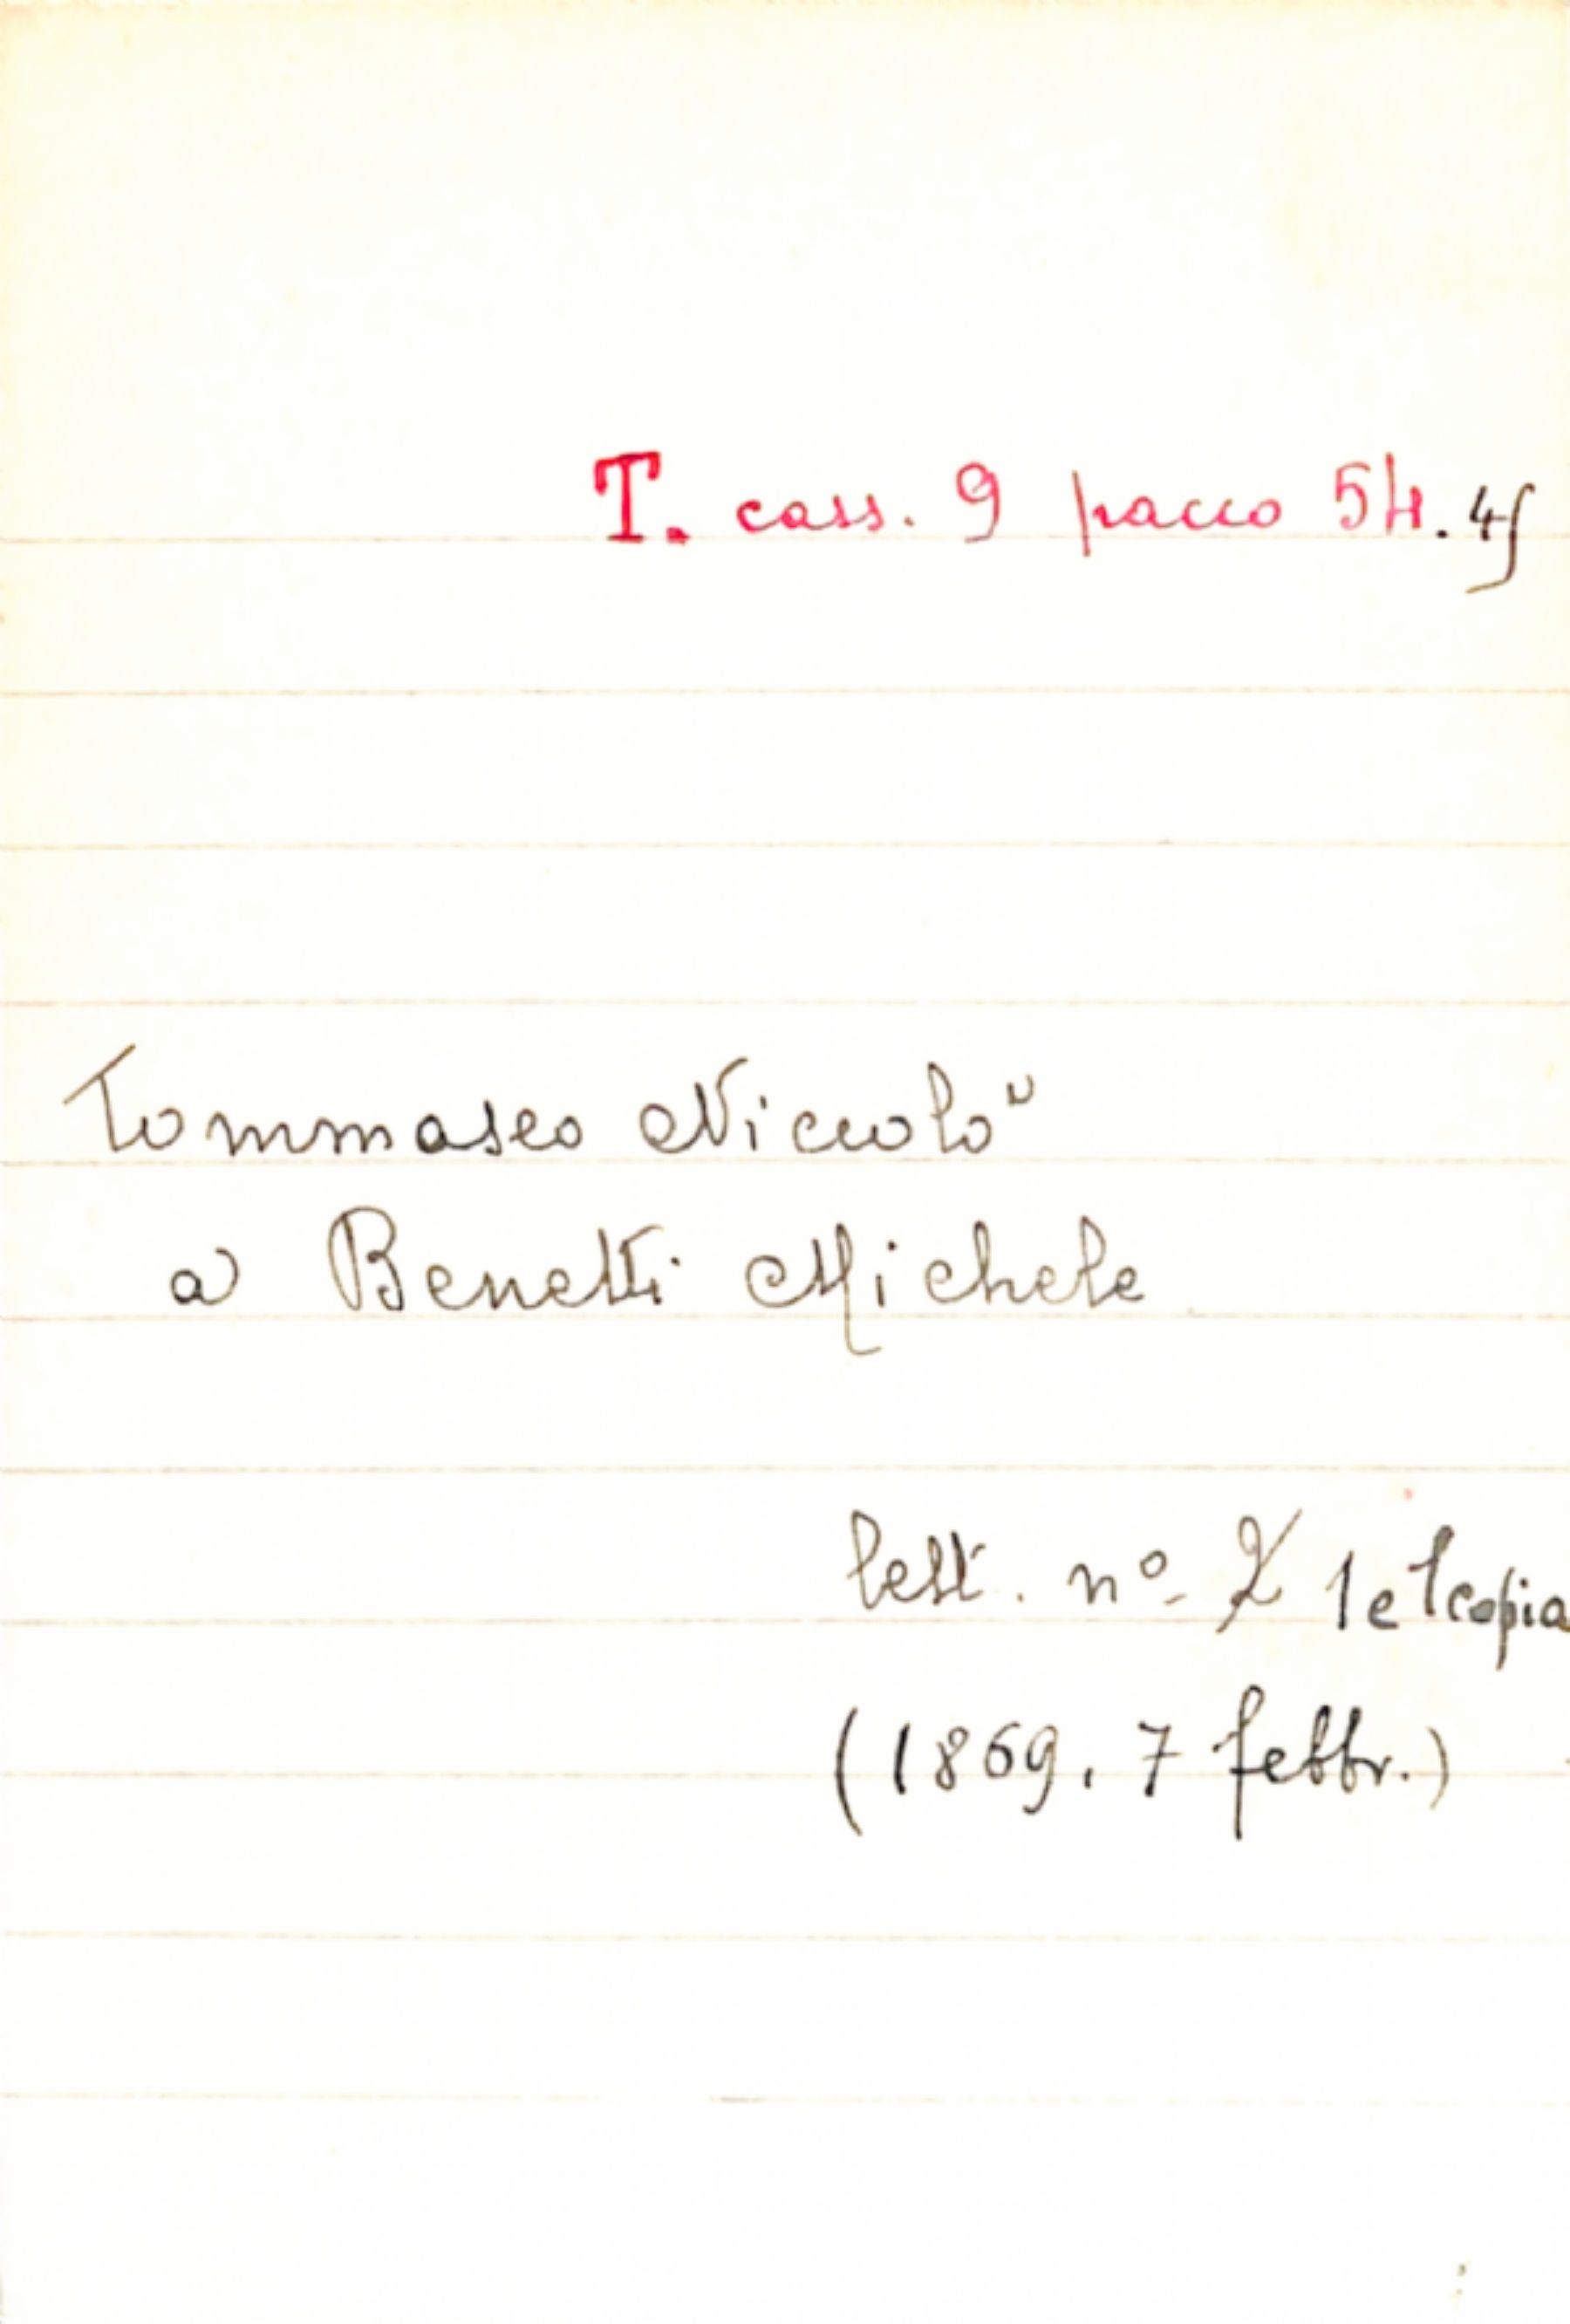 T. cass. 9 pacco 54.45
Tommaseo Niccolò
a Benetti Michele
lett. nº 2 1 e 1 copia
(1869, 7 febbr.)